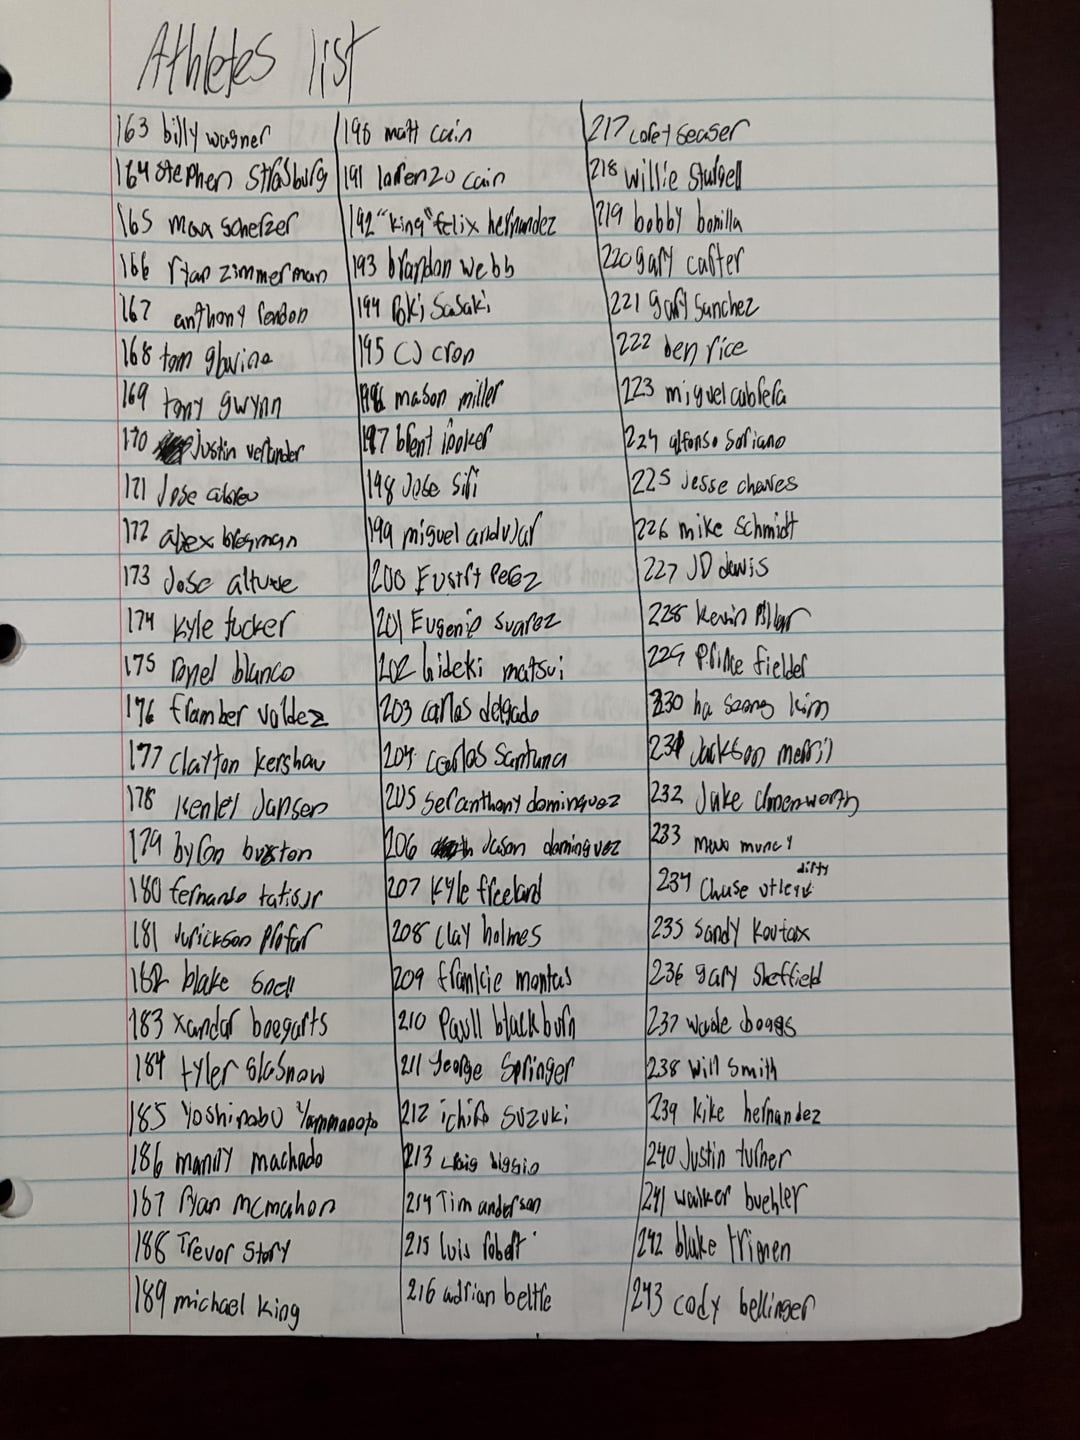 Athletes list
163 billy wagner
164 Stephen Strasburg
165 max scherzer
166 ryan zimmerman
167 anthony rendon
168 tom glavine
169 tony gwynn
170 Justin verlander
171 Jose abreu
172 alex bregman
173 Jose altuve
174 Kyle tucker
175 ronel blanco
176 framber valdez
177 Clayton Kershaw
178 Kenley Jansen
179 byron buxton
180 fernando tatis jr
181 Jurickson Profar
182 blake Snell
183 xandar boegarts
184 tyler Glasnow
185 Yoshinobu Yammaoto
186 manny machado
187 Ryan mcmahon
188 Trevor Story
189 michael King
190 matt cain
191 lorenzo cain
192 "King" felix hernandez
193 brandon webb
194 Roki Sasaki
195 CJ cron
196 mason miller
197 brent rooker
198 Jose Siri
199 miguel andujar
200 Perez
201 Eugenio Suarez
202 hideki matsui
203 carlos delgado
204 carlos Santana
205 Seranthony dominquez
206 Jason dominguez
207 Kyle freeland
208 Clay holmes
209 frankie montas
210 Paull blackburn
211 George Springer
212 ichiro Suzuki
213 Craig biggio
214 Tim anderson
215 luis robert
216 adrian beltre
217 corey seager
218 willie Stargell
219 bobby bonilla
220 gary carter
221 Gary Sanchez
222 ben rice
223 miguel cabrera
224 alfonso Soriano
225 Jesse chaves
226 mike Schmidt
227 JD davis
228 Kevin Pillar
229 Prince fielder
230 ha seong kim
231 Jackson merril
232 Jake Cronenworth
233 max muncy
234 Chase utley dirty
235 Sandy Koufax
236 gary Sheffield
237 wade boggs
238 Will Smith
239 Kike hernandez
240 Justin turner
241 walker buehler
242 blake trienen
243 cody bellinger